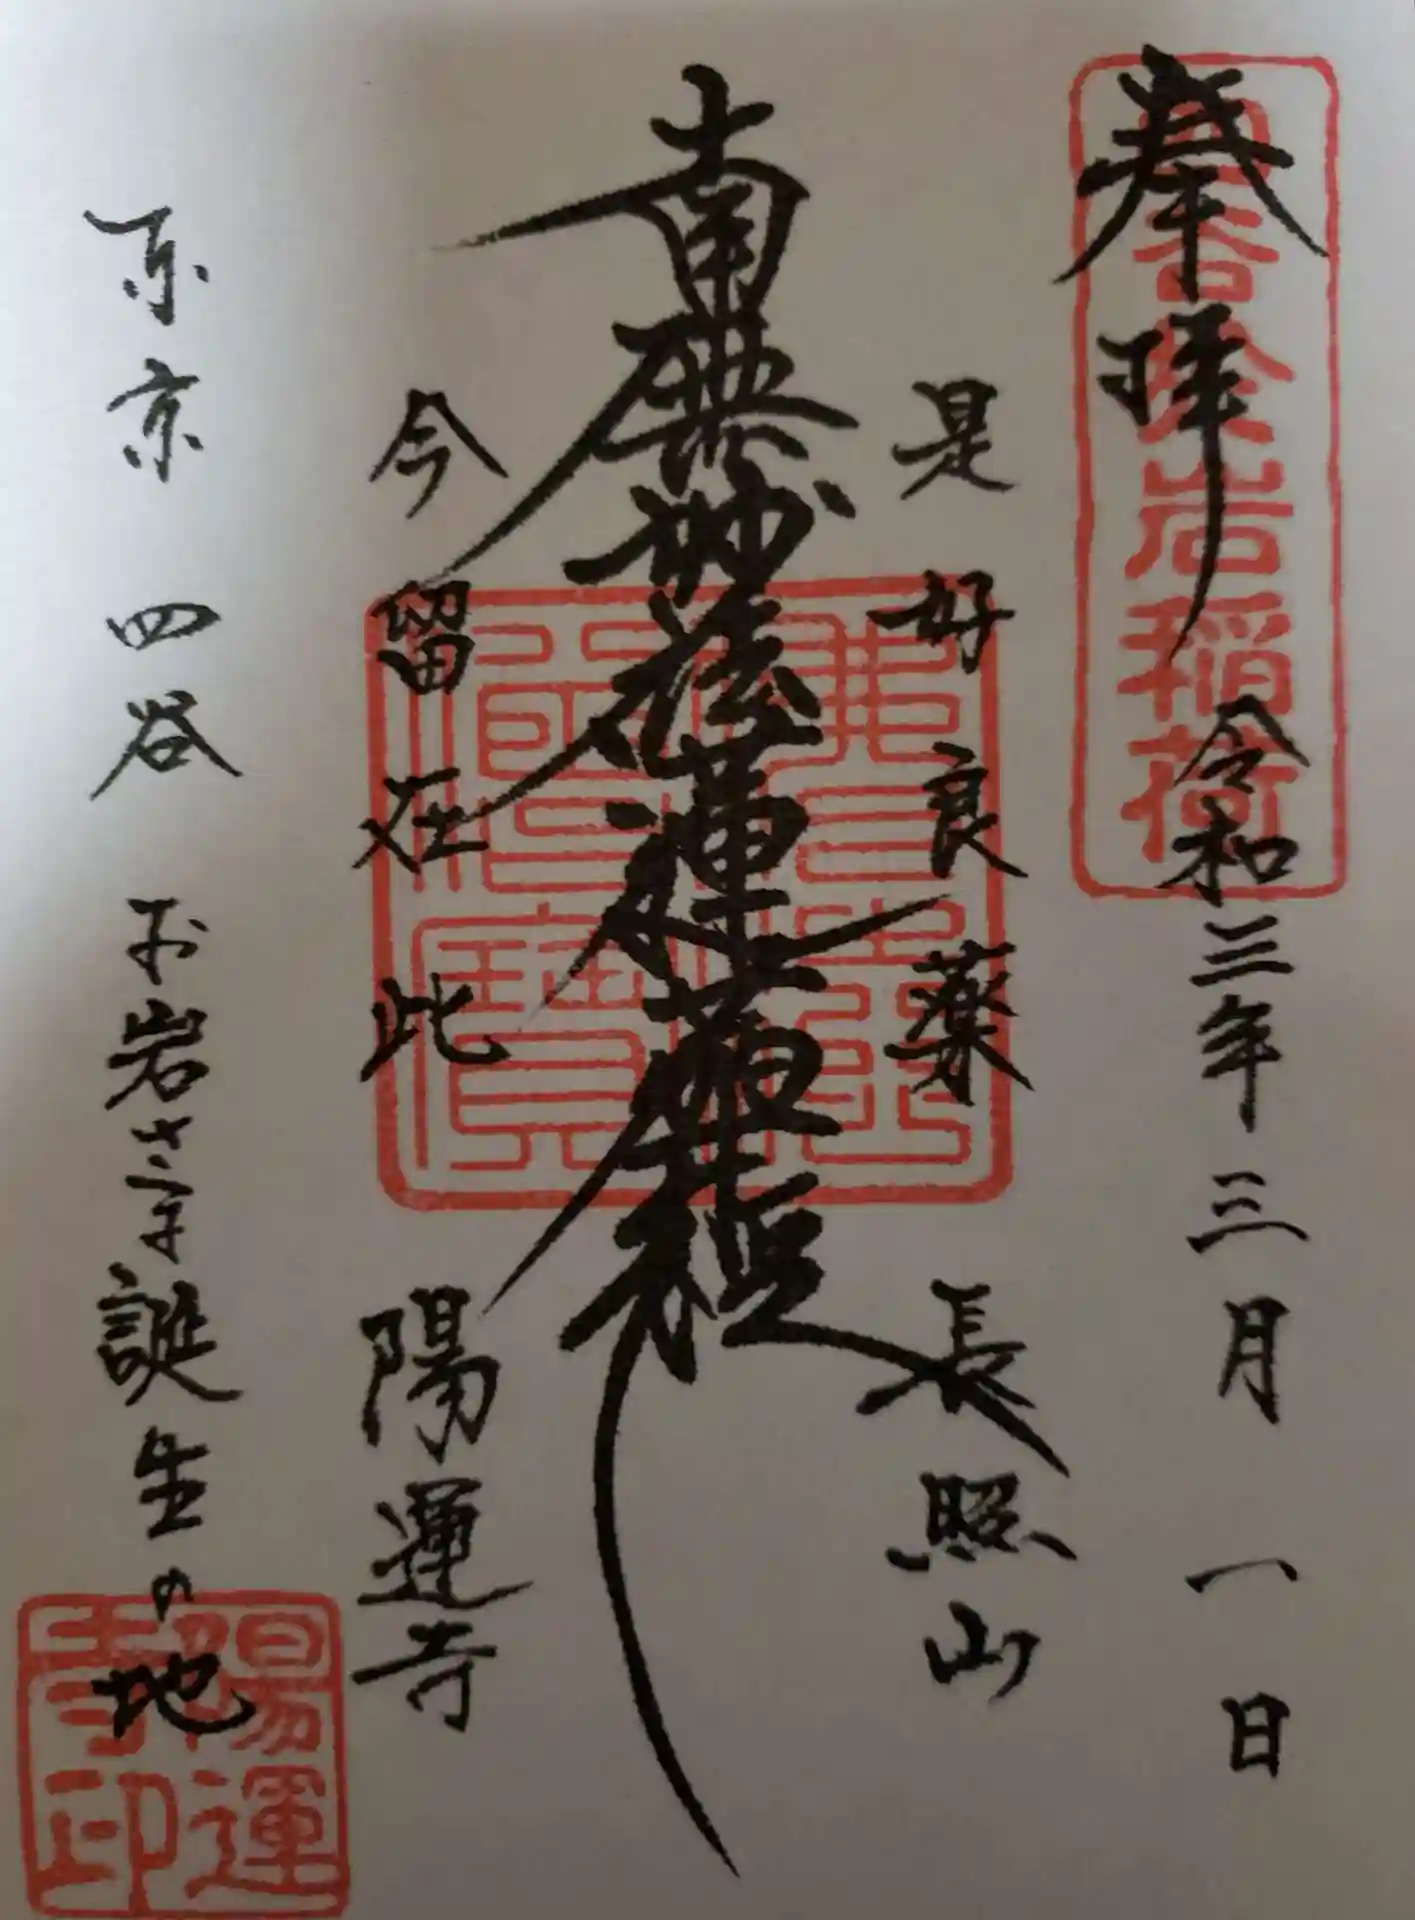 奉拝
四谷於岩稲荷
令和三年三月一日
是好良薬
長照山
南無妙法蓮華経
今留在此
陽運寺
東京 四谷 お岩さま誕生の地
陽運寺印